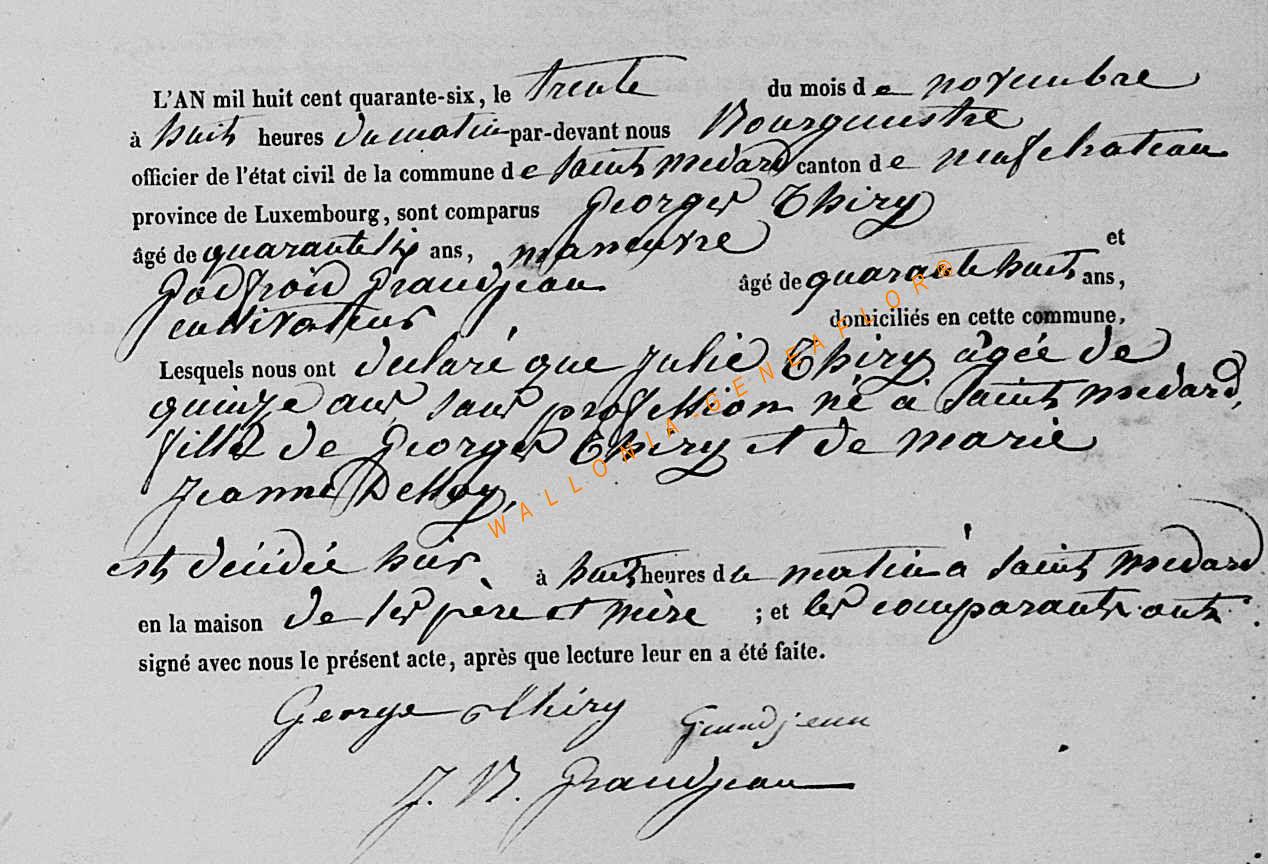 L'AN mil huit cent quarante-six, le trente du mois de novembre
à huit heures du matin par-devant nous Bourgmestre
officier de l'état civil de la commune de Saint medard canton de neufchateau
province de Luxembourg, sont comparus Georges Thiry
âgé de quarante six ans, maneuvre et
Godfroid Grandjean âgé de quarante huit ans,
cultivateur domiciliés en cette commune,
Lesquels nous ont declaré que Julie Thiry âgée de
quinze ans sans profession né à Saint medard,
fille de Georges Thiry et de marie
Jeanne
est décédée hier à huit heures du matin à Saint medard
en la maison de ses père et mère ; et les comparants ont
signé avec nous le présent acte, après que lecture leur en a été faite.
George Thiry Grandjean
J. B. Grandjean
WALLONIA-GENEAFLOR®